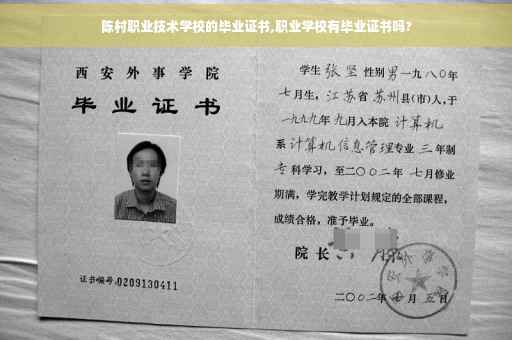 陈村职业技术学校的毕业证书,职业学校有毕业证书吗?
西安外事学院
毕业证书
证书编号:0209130411
学生张坚性别男一九八〇年
七月生,江苏省苏州县(市)人,于
一九九九年九月入本院计算机
系计算机信息管理专业三年制
专科学习,至二〇〇二年七月修业
期满,学完教学计划规定的全部课程,
成绩合格,准予毕业。
院长
二〇〇二年 月五日